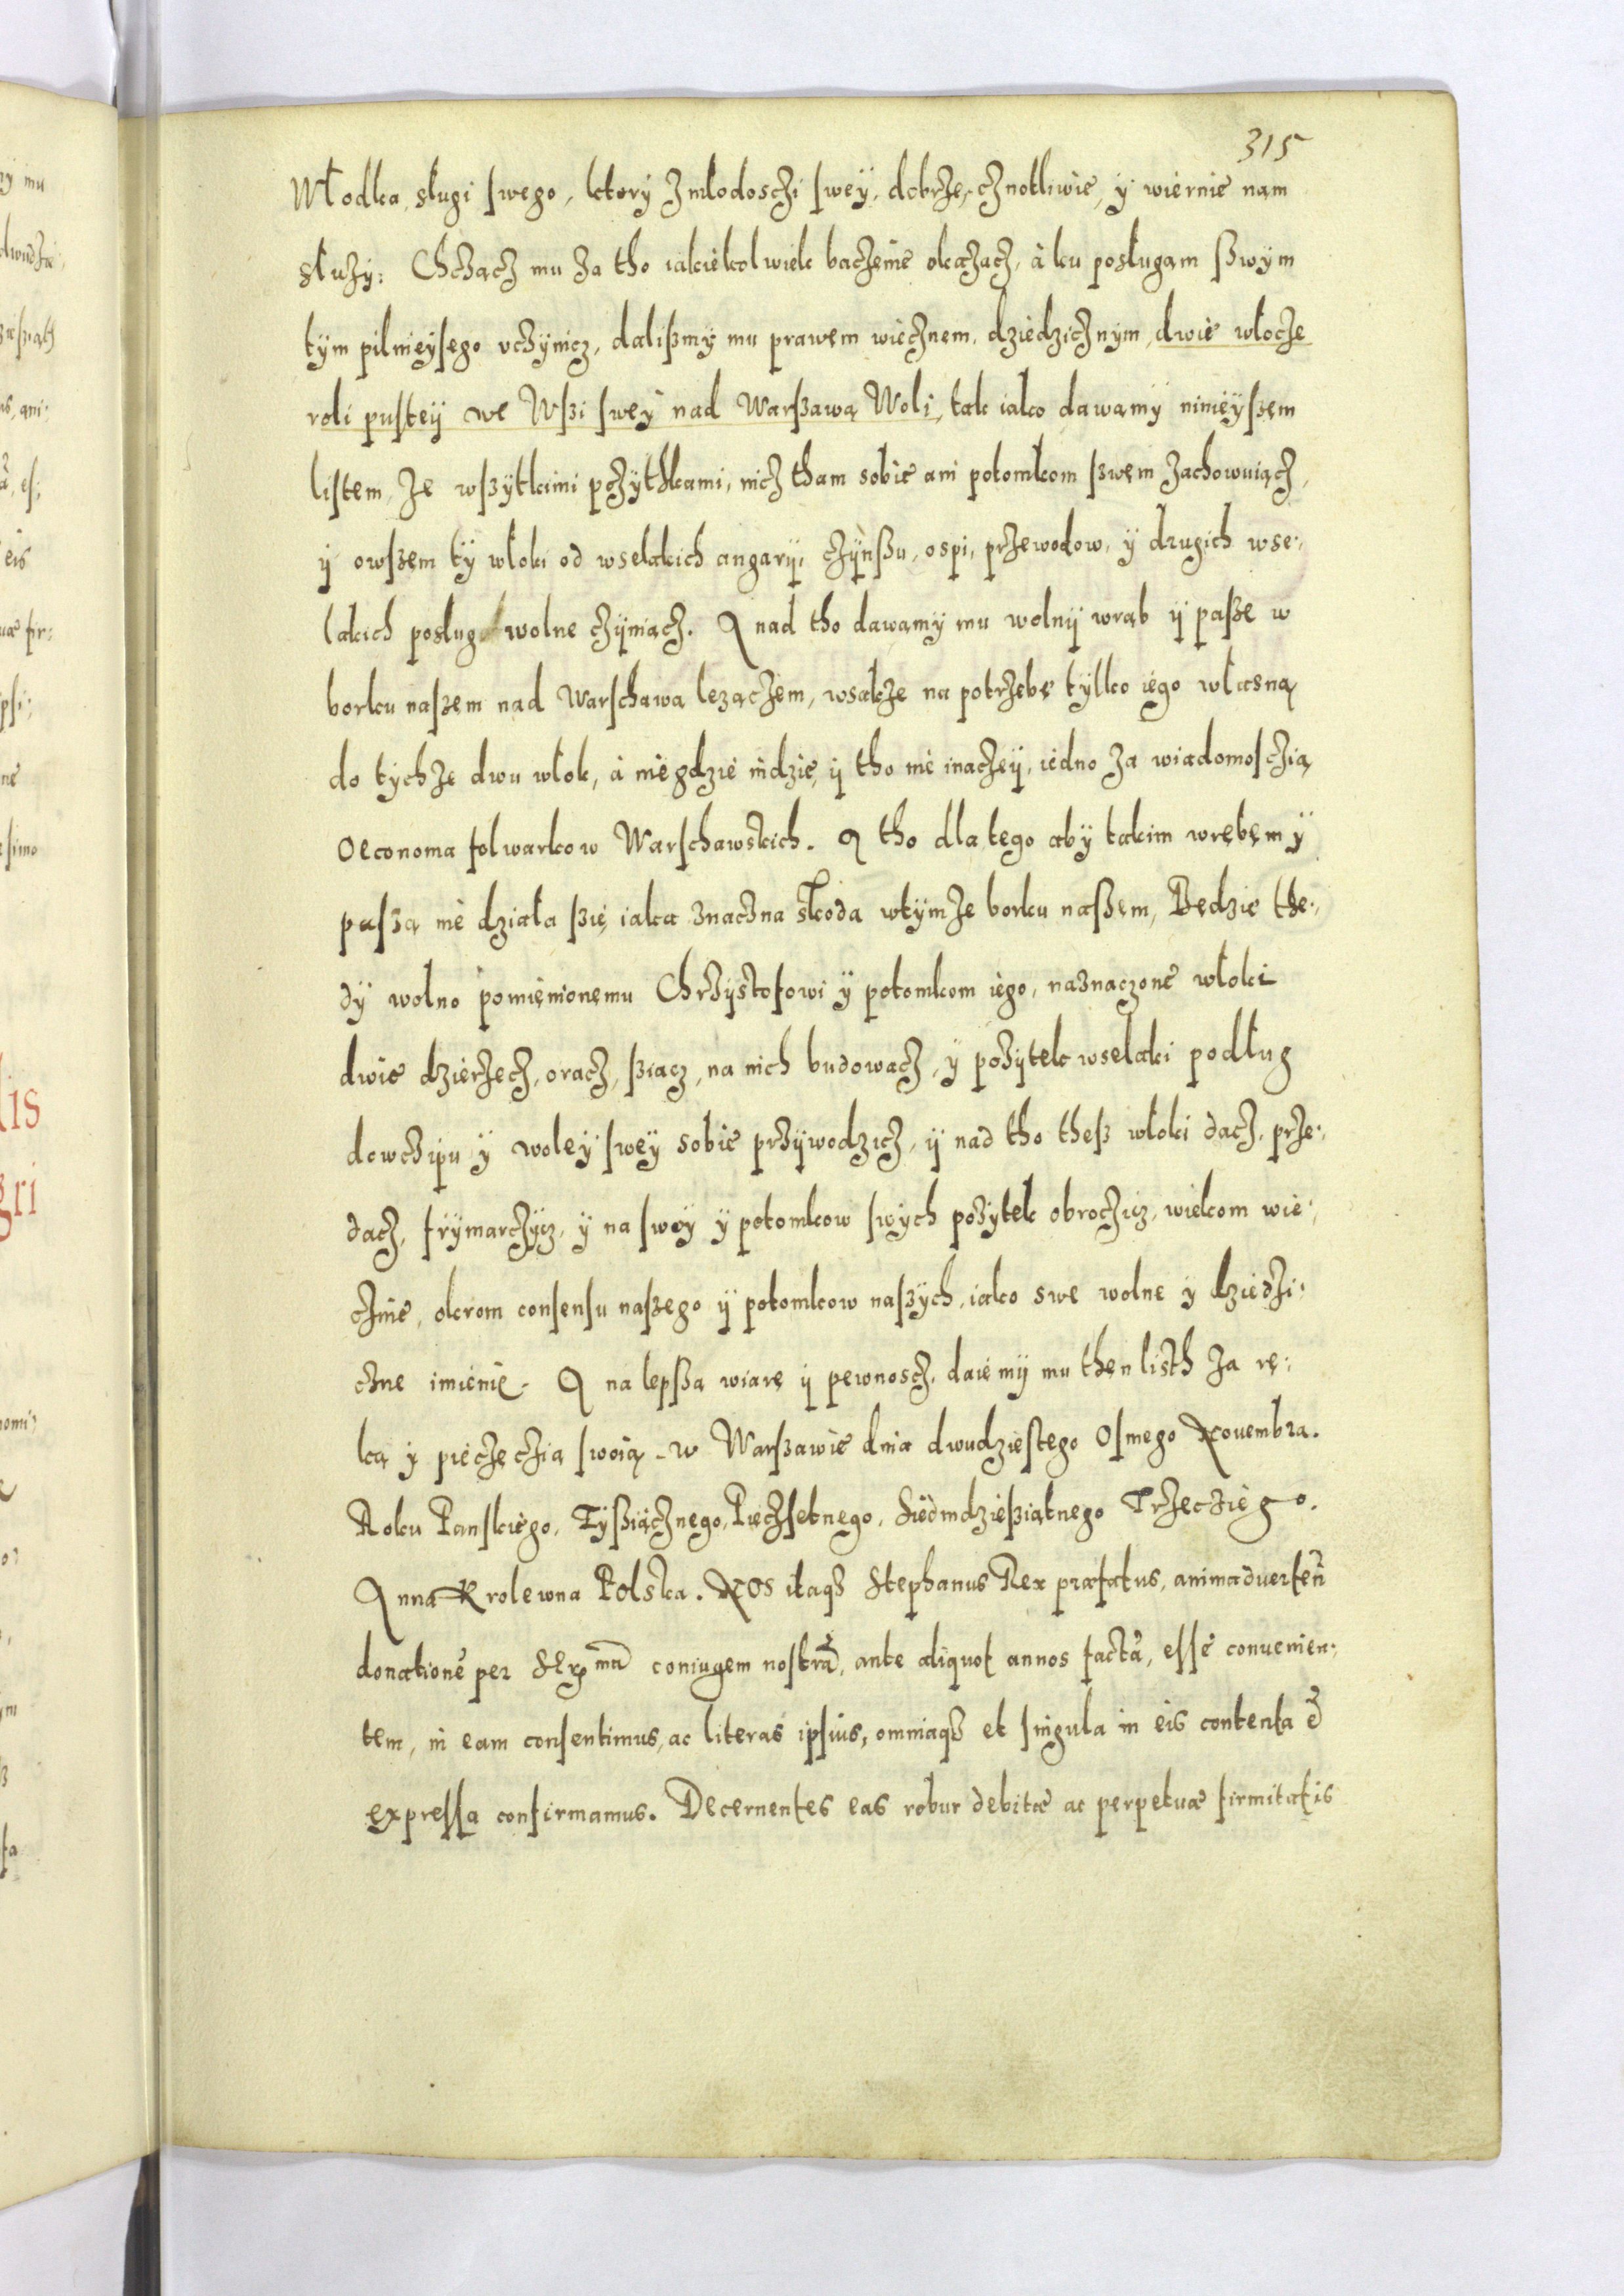 315
Włodka slugi swego, ktory z mlodosczi swey, dobrze, cznotliwie, y wiernie nam
słuzy: Chczącz mu za tho iakiekolwiek baczenie okazacz, à ku posługam swym
tym pilnieysego vczynicz, dalismy mu prawem wiecznem, dziedzicznym, dwie włocze
roli pustey we Wsi swey nad Warszawą Woli, tak iako dawamy ninieyszem
listem, ze wszytkimi pozythkami, nicz tham sobie ani potomkom swem zachowuiącz,
y owszem ty włoki od wselakich angaryi, czynszu, ospi, przewodow, y drugich wse:
lakich posług wolne czyniącz. A nad tho dawamy mu wolny wrąb y pasze w
borku naszem nad Warschawą lezączem, wsakze na potrzebę tylko iego własną
do tychze dwu włok, à niegdzie indzie, y tho nie inaczey, iedno za wiadomosczią
Oeconoma folwarkow Warschawskich. A tho dla tego aby takim wrębem y
paszą nie działa się iaka znaczna skoda wtymze borku naszem, Będzie the:
dy wolno pomienionemu Chrzystofowi y potomkom iego, naznaczone włoki
dwie dzierzecz, oracz, siacz, na nich budowacz, y pozytek wselaki podług
dowczipu y woley swey sobie przywodzicz, y nad tho thesz włoki dacz, prze:
dacz, frymarczycz, y na swoy y potomkow swych pozytek obroczicz, wiekom wie:
cznie, okrom consensu naszego y potomkow naszych, iako swe wolne y dziedzi:
czne imienie. A na lepszą wiarę y pewnoscz, daiemy mu then listh za rę:
ką y pieczeczią swoią. w Warszawie dnia dwudziestego Osmego Nouembra.
Roku Panskiego, Tysiącznego, Pieczsetnego, Siedmdziesiątnego Trzecziego.
Anna Krolewna Polska. Nos itaqȝ Stephanus Rex præfatus, animaduerteñ
donationē per Serᵐᵃ̄ coniugem nostrā, ante aliquot annos factā, esse conuenien:
tem, in eam consentimus, ac literas ipsius, omniaqȝ et singula in eis contenta &
expressa confirmamus. Decernentes eas robur debitæ ac perpetuæ firmitatis